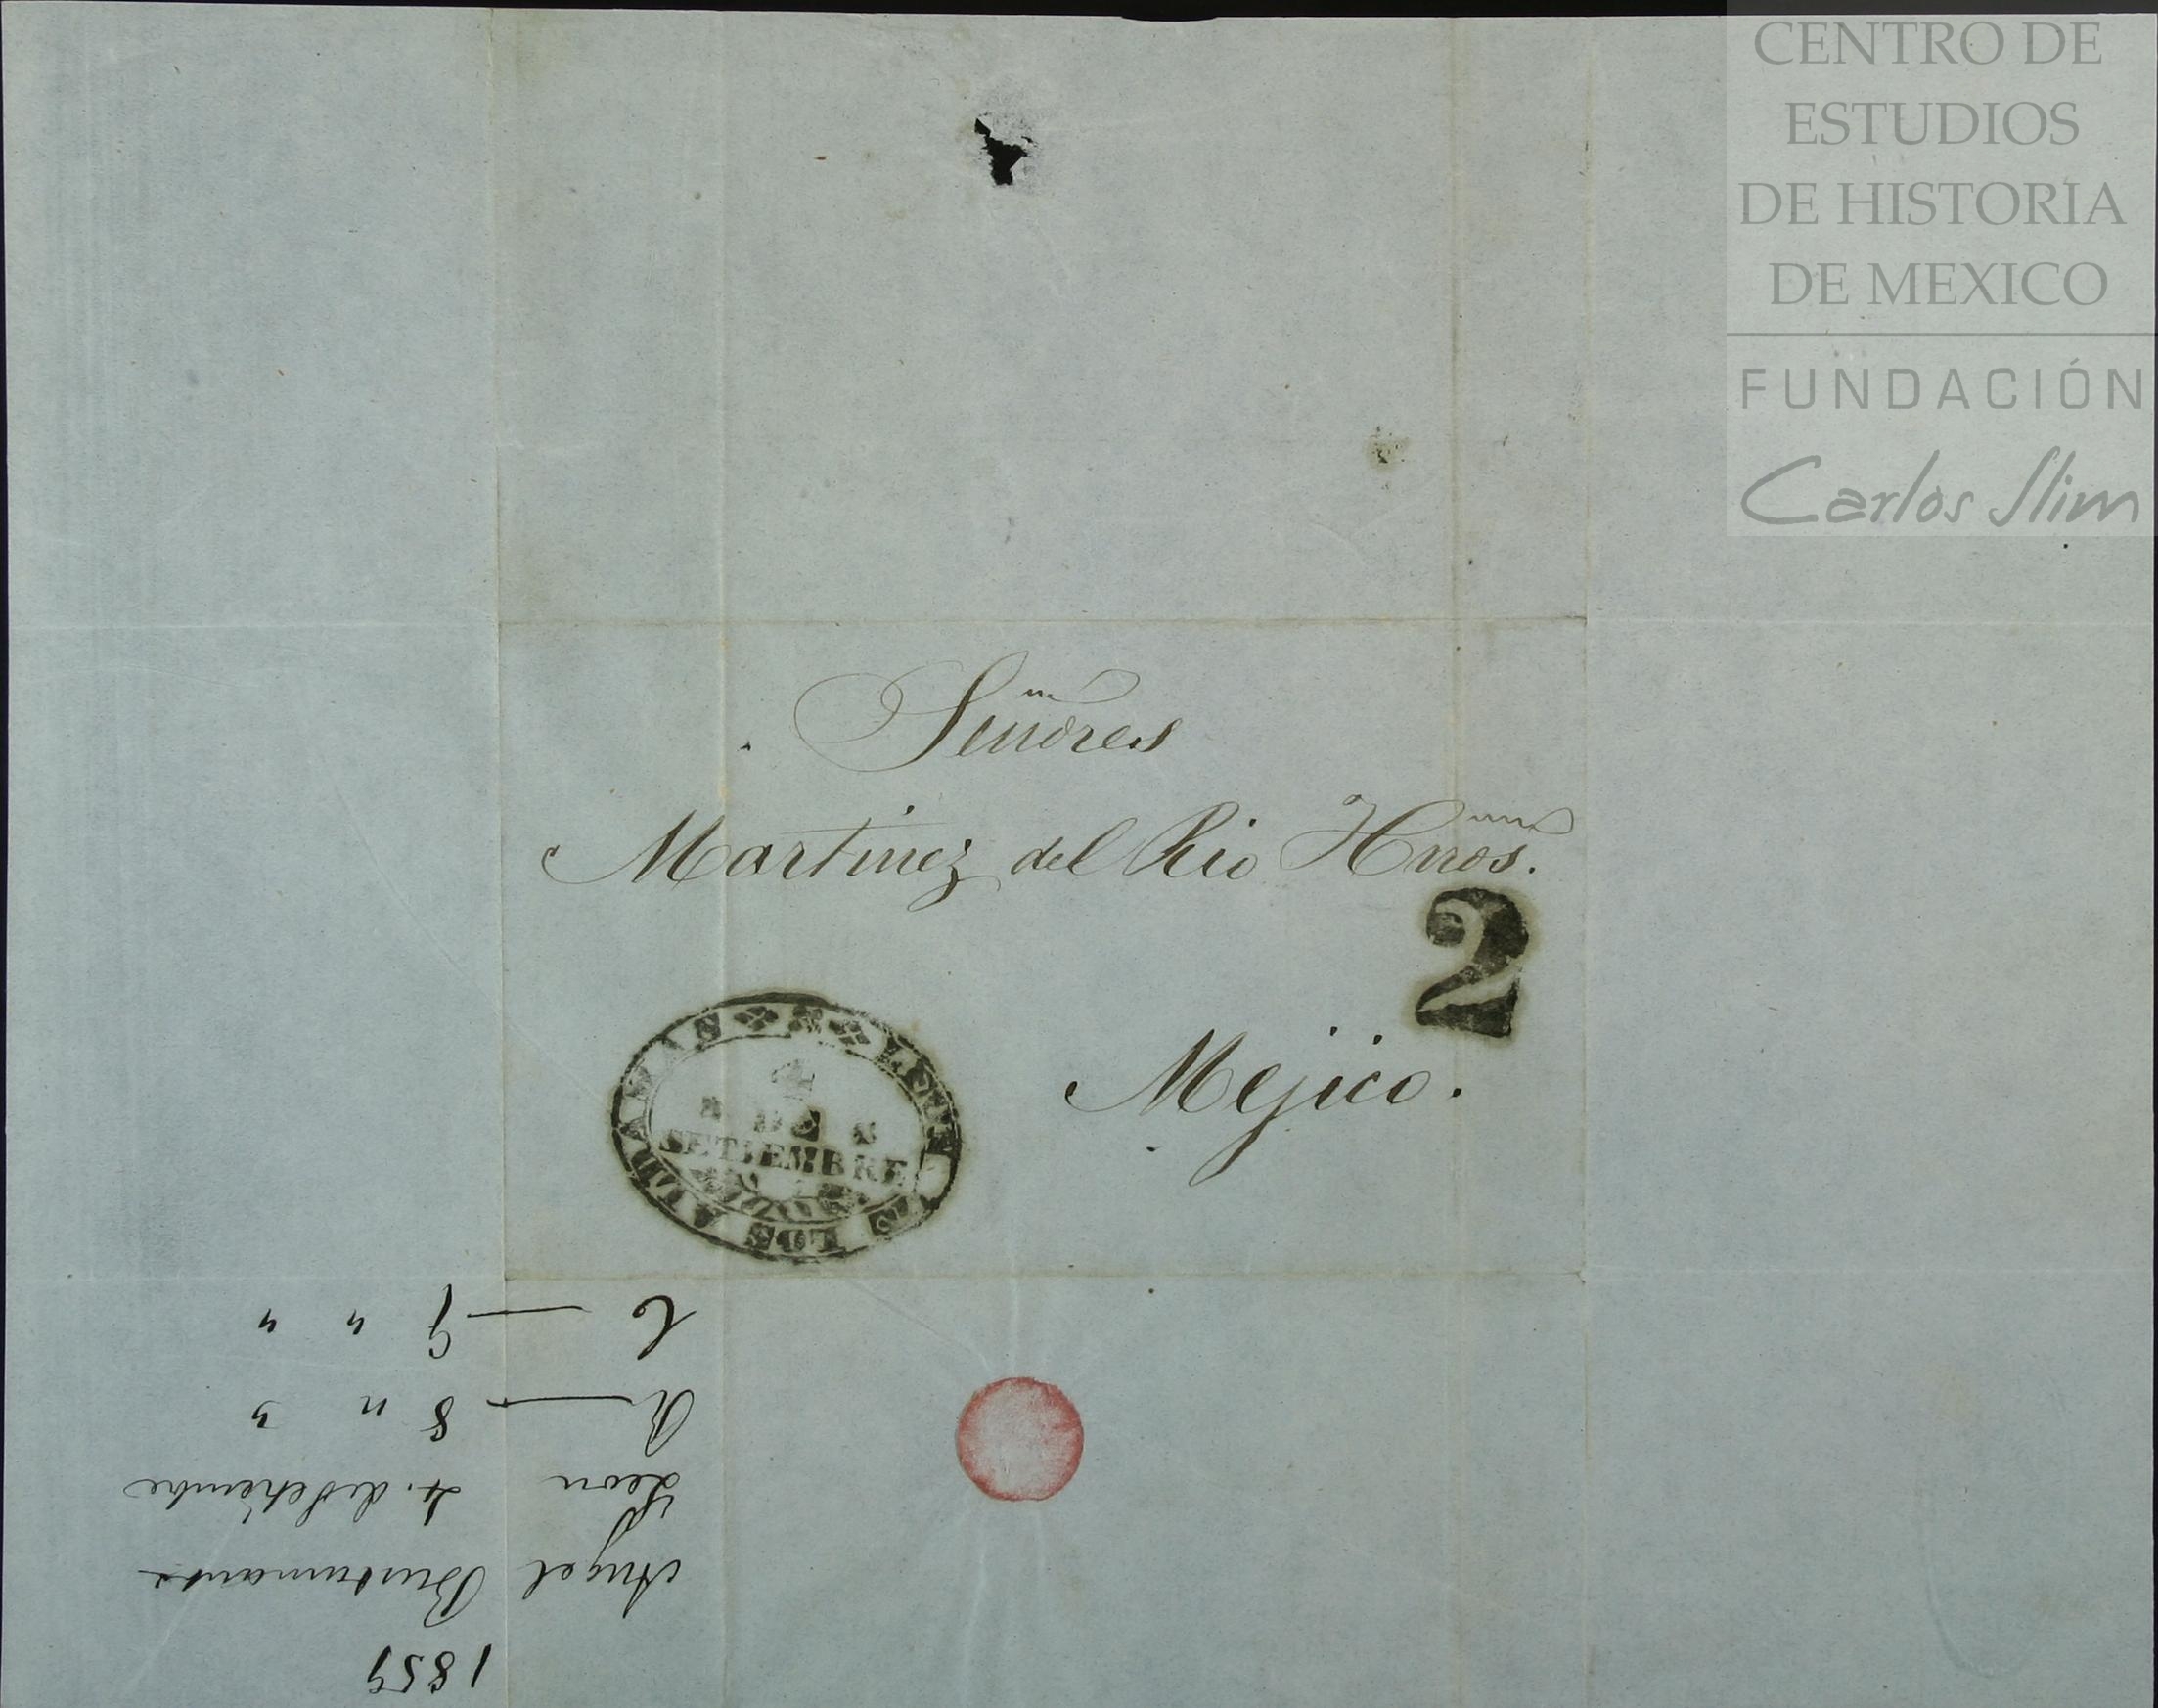 CENTRO DE
ESTUDIOS
DE HISTORIA
DE MEXICO
FUNDACIÓN
Carlos Slim
Señores
Martinez del Rio Hnos.
2
Mejico.
LEON DE LOS ALDAMAS
DE
SETIEMBRE
1859
Angel Bustamante
Leon 4. de Setiembre
R — 8 " "
C — 9 " "